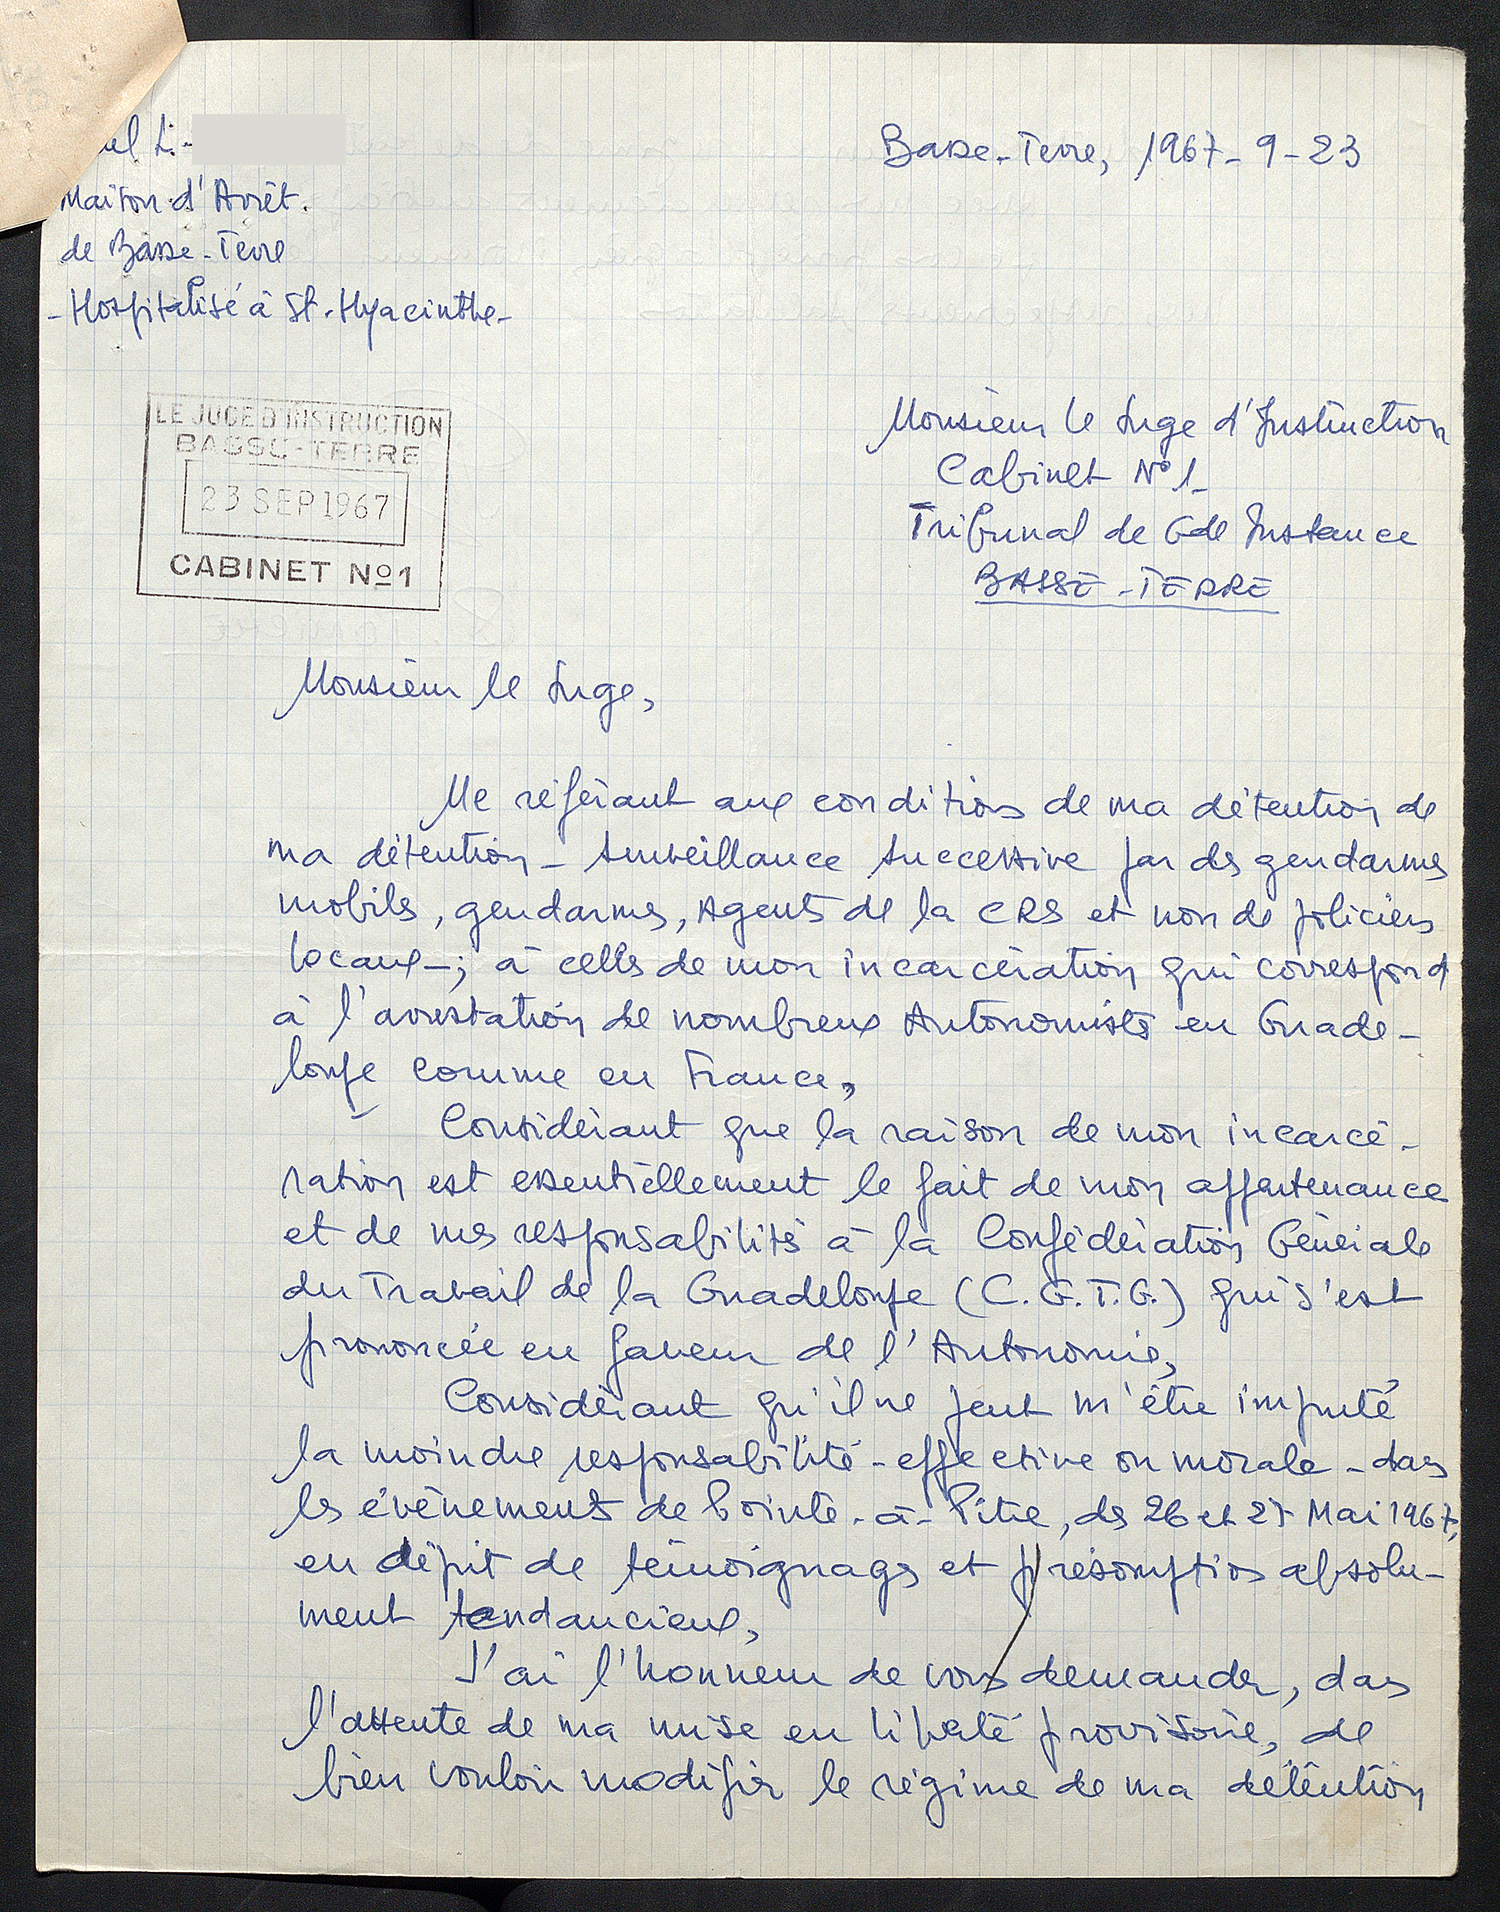 Maison d'Arrêt.
de Basse-Terre
- Hospitalisé à St. Hyacinthe -
Basse-Terre, 1967-9-23
LE JUGE D'INSTRUCTION
BASSE-TERRE
23 SEP 1967
CABINET Nº1
Monsieur le Juge d'Instruction
Cabinet Nº 1-
Tribunal de Gde Instance
BASSE-TERRE
Monsieur le Juge,
Me référant aux conditions de ma détention de
ma détention - surveillance successive par des gendarmes
mobiles, gendarmes, Agents de la CRS et non de policiers
locaux -; à celles de mon incarcération qui correspond
à l'arrestation de nombreux Autonomistes en Guade-
loupe comme en France,
Considérant que la raison de mon incarcé-
ration est essentiellement le fait de mon appartenance
et de mes responsabilités à la Confédération Générale
du Travail de la Guadeloupe (C.G.T.G.) qui s'est
prononcée en faveur de l'Autonomie,
Considérant qu'il ne peut m'être imputé
la moindre responsabilité - effective ou morale - dans
les évènements de Pointe-à-Pitre, des 26 et 27 Mai 1967,
en dépit de témoignages et présomptions absolu-
ment tendancieux,
J'ai l'honneur de vous demander, dans
l'attente de ma mise en liberté provisoire, de
bien vouloir modifier le régime de ma détention